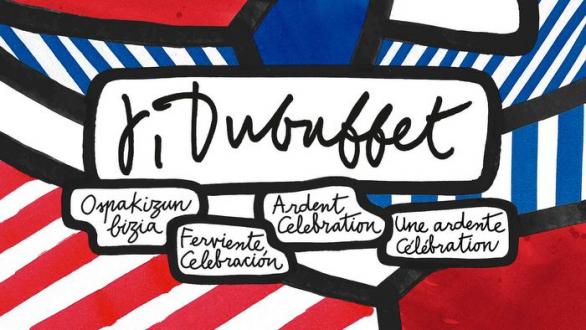 J. Dubuffet
Ospakizun
bizia
Ferviente
Celebración
Ardent
Celebration
Une ardente
Célébration